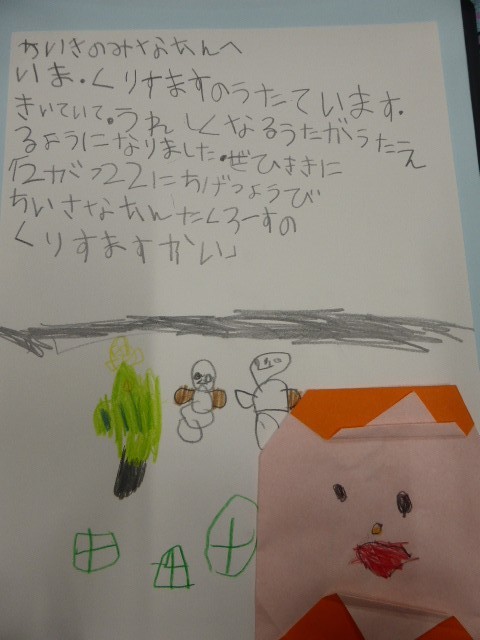 ちいきのみなさんへ
いま・くりすますのうたています.
きいていて。うれしくなるうたがうたえ
るようになりました。ぜひききに
12がつ22にちげつようび
ちいさなさんたくろーすの
くりすますかい」